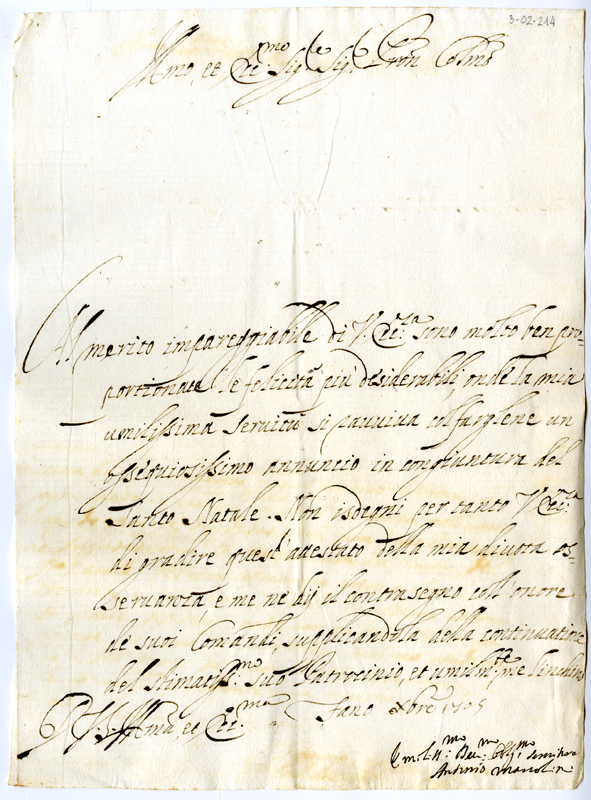 3-02-214
Illmo, et Ecc.mo Sig.re Sig.re Pron Colmo
Al merito impareggiabile di V. Ecc.za sono molto ben pro-
portionate le felicità più desiderabili, onde la mia
umilissima servitù si ravviva col fargliene un
ossequiosissimo annuncio in congiuntura del
Santo Natale. Non isdegni per tanto V. Ecc.za
di gradire quest'attestato della mia divota os-
servanza, e me ne dij il contrasegno coll'onore
de suoi Comandi, supplicandola della continuatione
del stimatiss.mo suo Patrocinio, et umilm.te me l'inchino
D. V. Illma, et Ecc.ma Fano Xbre 1705
Umiliss.mo Dev.mo Obl.mo Servitore
Antonio